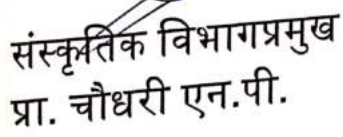 संस्कृतिक विभागप्रमुख
प्रा. चौधरी एन.पी.